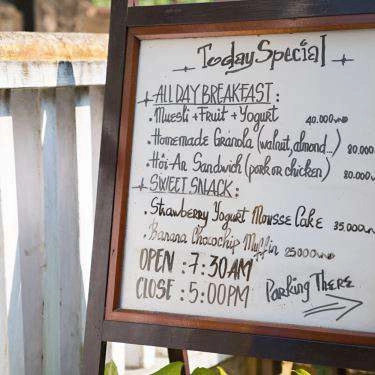 Today Special
ALL DAY BREAKFAST :
. Muesli + Fruit + Yogurt 40.000 VND
. Homemade Granola (walnut, almond...) 80.000
. Hôi An Sandwich (pork or chicken) 80.000 VND
SWEET SNACK :
. Strawberry Yogurt Mousse Cake 35.000 VND
. Banana Chocochip Muffin 25000 VND
OPEN : 7:30AM
CLOSE : 5:00PM
Parking There